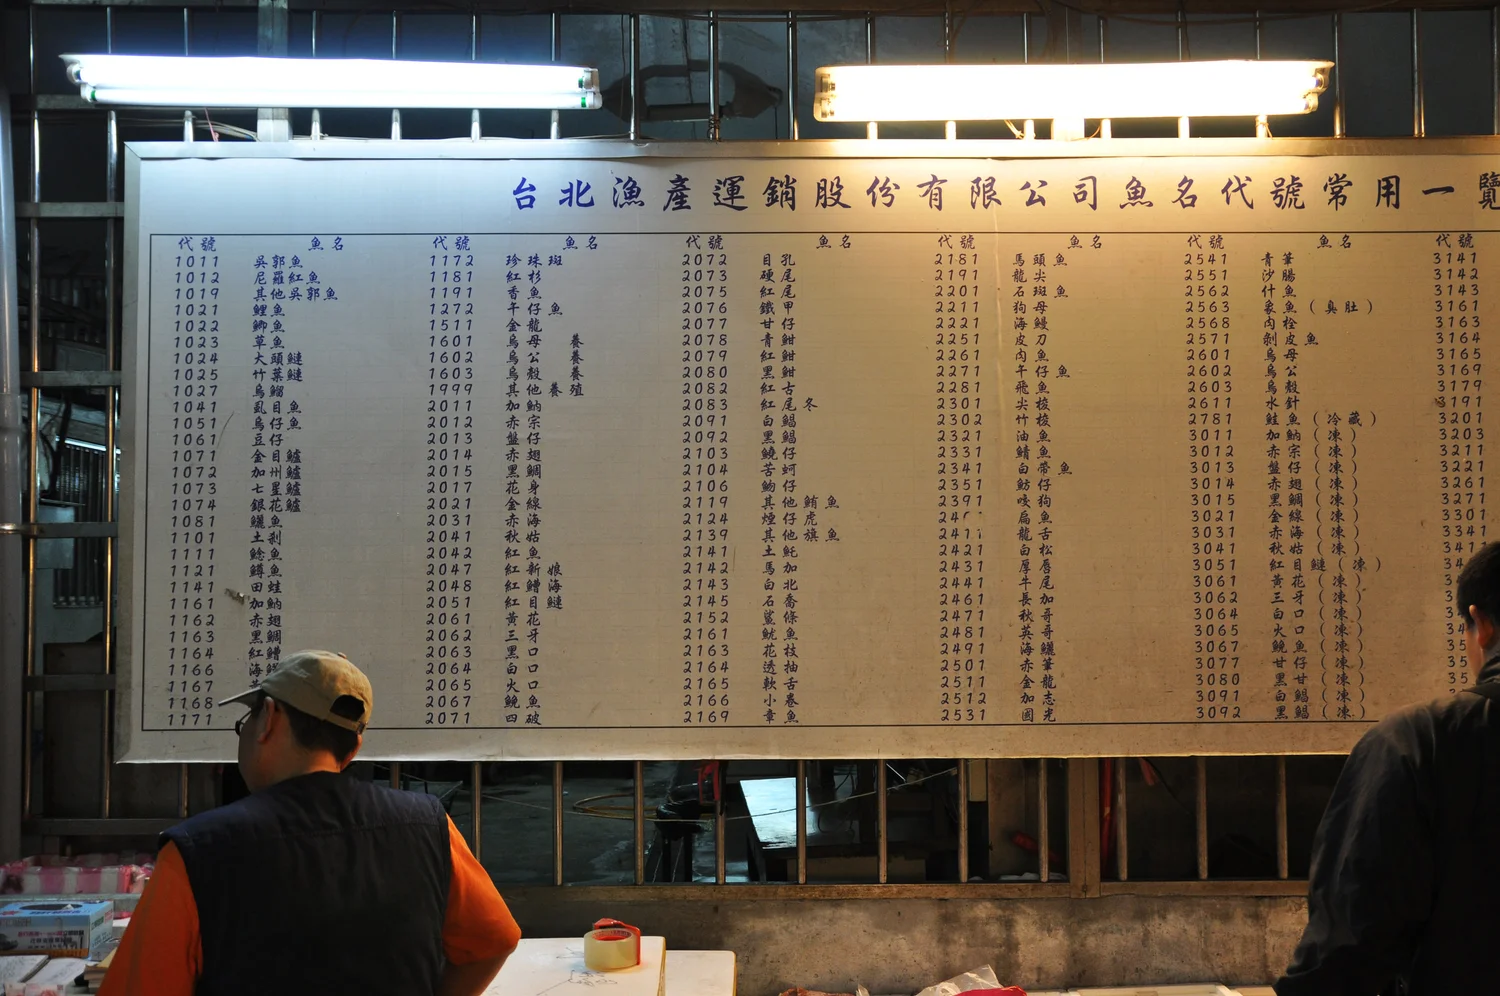 台北漁產運銷股份有限公司魚名代號常用一覽
代號 魚名
1011 吳郭魚
1012 尼羅紅魚
1019 其他吳郭魚
1021 鯉魚
1022 鯽魚
1023 草魚
1024 大頭鰱
1025 竹葉鰱
1027 烏鰡
1041 虱目魚
1051 烏仔魚
1061 豆仔
1071 金目鱸
1072 加州鱸
1073 七星鱸
1074 銀花鱸
1081 鱺魚
1101 土剎
1111 鯰魚
1121 鱒魚
1141 田蛙
1161 加魶
1162 赤翅
1163 黑鯛
1164 紅鰽
1166 海
1167
1168
1171
代號 魚名
1172 珍珠斑
1181 紅杉
1191 香魚
1272 午仔魚
1511 金龍
1601 烏母 養
1602 烏公 養
1603 烏殼 養
1999 其他養殖
2011 加魶
2012 赤宗
2013 盤仔
2014 赤翅
2015 黑鯛
2017 花身
2021 金線
2031 赤海
2041 秋姑
2042 紅魚
2047 紅新娘
2048 紅鰽海
2051 紅目鰱
2061 黃花
2062 三牙
2063 黑口
2064 白口
2065 火口
2067 鮸魚
2071 四破
代號 魚名
2072 目孔
2073 硬尾
2075 紅尾
2076 鐵甲
2077 甘仔
2078 青魽
2079 紅魽
2080 黑魽
2082 紅古
2083 紅尾冬
2091 白鯧
2092 黑鯧
2103 鐃仔
2104 苦蚵
2106 魩仔
2119 其他鮪魚
2124 煙仔虎
2139 其他旗魚
2141 土魠
2142 馬加
2143 白北
2145 石喬
2152 鯊條
2161 魷魚
2163 花枝
2164 透抽
2165 軟舌
2166 小卷
2169 章魚
代號 魚名
2181 馬頭魚
2191 龍尖
2201 石斑魚
2211 狗母
2221 海鰻
2251 皮刀
2261 肉魚
2271 午仔魚
2281 飛魚
2301 尖梭
2302 竹梭
2321 油魚
2331 鯖魚
2341 白帶魚
2351 魴仔
2391 咬狗
扁魚
2411 龍舌
2421 白松
2431 厚唇
2441 牛尾
2461 長加
2471 秋哥
2481 英哥
2491 海鱺
2501 赤筆
2511 金龍
2512 加志
2531 圓光
代號 魚名
2541 青筆
2551 沙腸
2562 什魚
2563 象魚(臭肚)
2568 肉栓
2571 剝皮魚
2601 烏母
2602 烏公
2603 烏殼
2611 水針
2781 鮭魚(冷藏)
3011 加魶(凍)
3012 赤宗(凍)
3013 盤仔(凍)
3014 赤翅(凍)
3015 黑鯛(凍)
3021 金線(凍)
3031 赤海(凍)
3041 秋姑(凍)
3051 紅目鰱(凍)
3061 黃花(凍)
3062 三牙(凍)
3064 白口(凍)
3065 火口(凍)
3067 鮸魚(凍)
3077 甘仔(凍)
3080 黑甘(凍)
3091 白鯧(凍)
3092 黑鯧(凍)
代號
3141
3142
3143
3161
3163
3164
3165
3169
3179
3191
3201
3203
3211
3221
3261
3271
3301